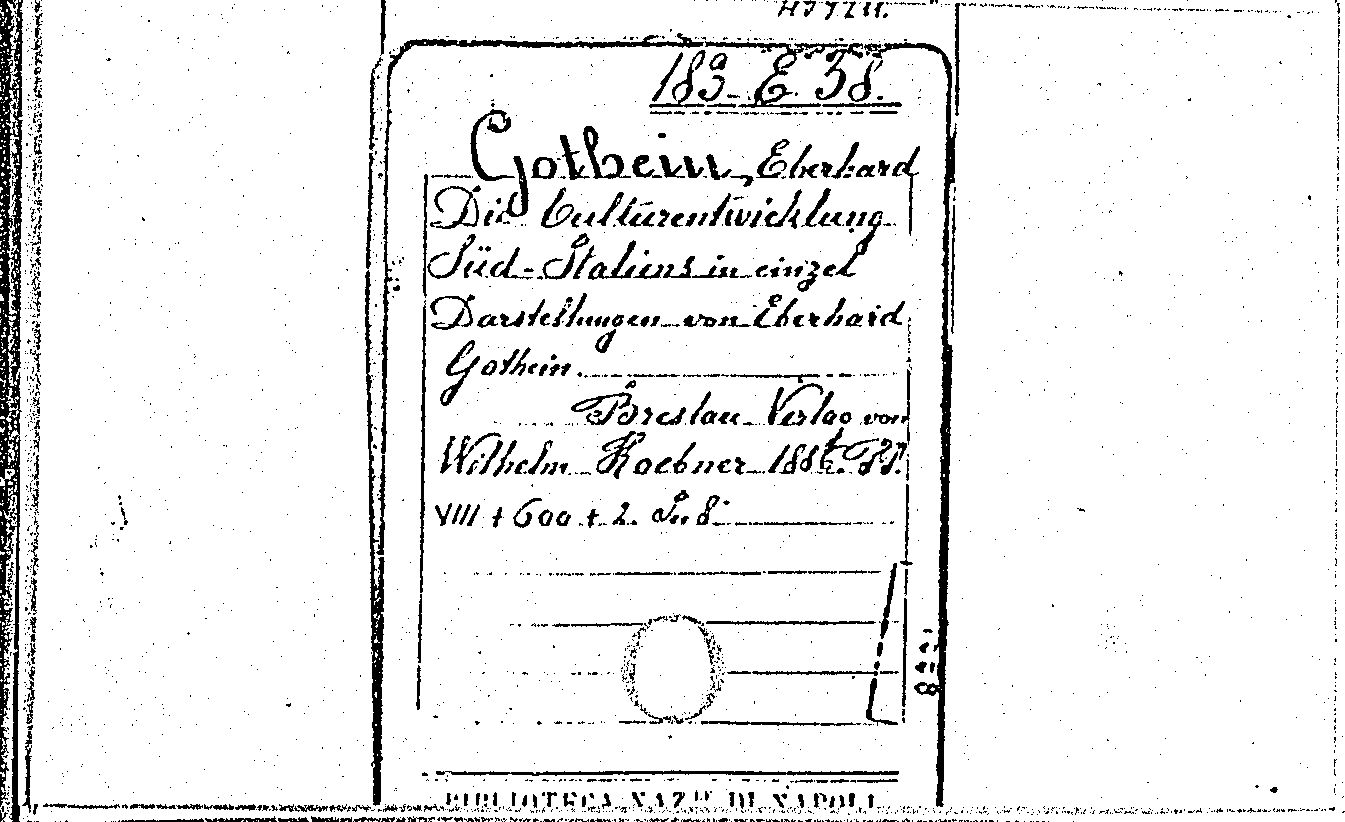 18ª E 38.
Gothein, Eberhard
Die Culturentwicklung
Süd-Italiens in einzel
Darstellungen von Eberhard
Gothein.
Breslau Verlag von
Wilhelm Koebner
VIII + 600 + 2. In 8°
BIBLIOTECA NAZ.LE DI NAPOLI